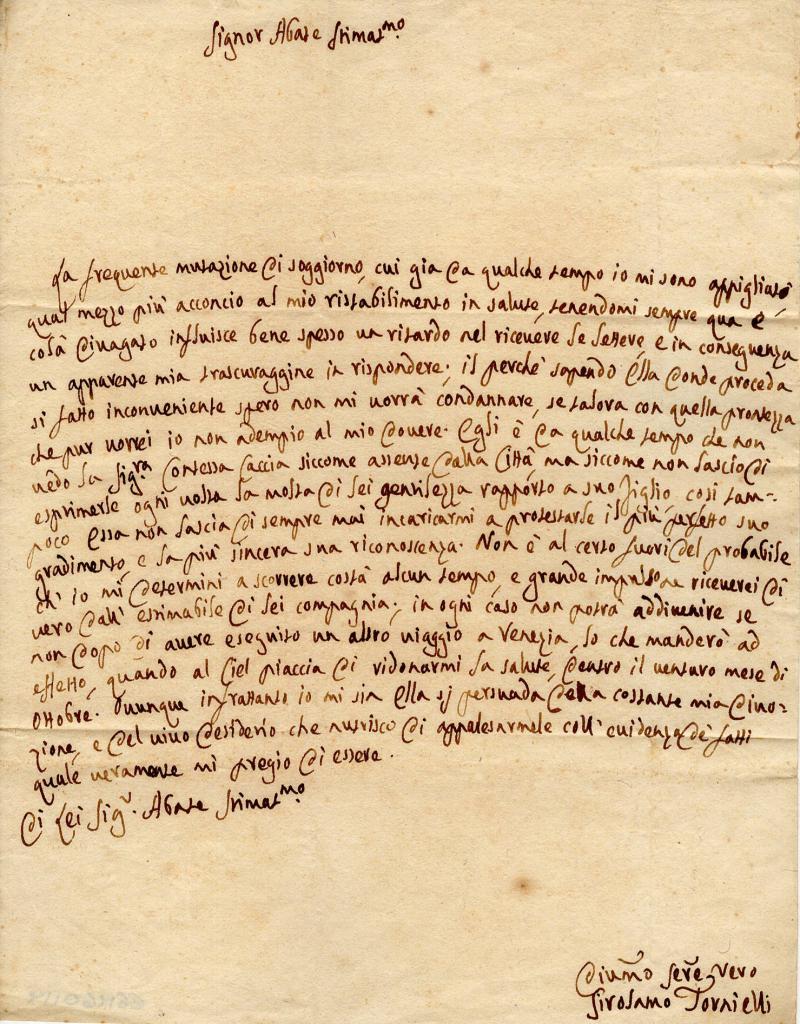 Signor Abate Stimat.mo
La frequente mutazione di soggiorno, cui gia da qualche tempo io mi sono appigliato,
qual mezzo più acconcio al mio ristabilimento in salute, tenendomi sempre qua e
colà divagato influisce bene spesso un ritardo nel ricevere le lettere, e in conseguenza
un apparente mia trascuraggine in rispondere; il perche sapendo Ella donde proceda
si fatto inconveniente spero non mi vorrà condannare, se talora con quella prontezza
che pur vorrei io non adempio al mio dovere. Egli è da qualche tempo che non
vedo la Sig.ra Contessa Caccia siccome assente dalla Città, ma siccome non lascio di
esprimerle ogni volta la molta di lei gentilezza rapporto a suo Figlio, così tam-
poco essa non lascia di sempre mai incaricarmi a protestarle il più perfetto suo
gradimento, e la più sincera sua riconoscenza. Non è al certo fuori del probabile
ch' io mi determini a scorrere costà alcun tempo, e grande impulso ne riceverei di
vero dall' estimabile di lei compagnia; in ogni caso non potrà addivenire se
non dopo di avere eseguito un altro viaggio a Venezia, lo che manderò ad
effetto, quando al Ciel piaccia di ridonarmi la salute, dentro il venturo mese di
Ottobre. Ovunque infrattanto io mi sia Ella si persuada della costante mia divo=
zione, e del vivo desiderio che nutrisco di appalesarmele coll' evidenza de' fatti
quale veramente mi pregio di essere.
Di Lei Sig.r Abate Stimat.mo
Divmo Sere vero
Girolamo Tornielli